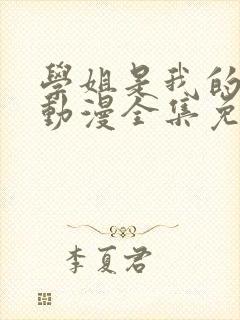 學姐是我的
動漫全集免
李夏君